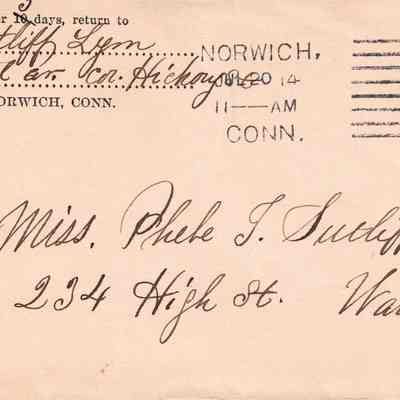 5
er 10 days, return to
tliff Lym
l av. cor. Hickory
ORWICH, CONN.
NORWICH,
JUL 20 14
11—AM
CONN.
Miss. Phebe T. Sutliff
234 High St. War